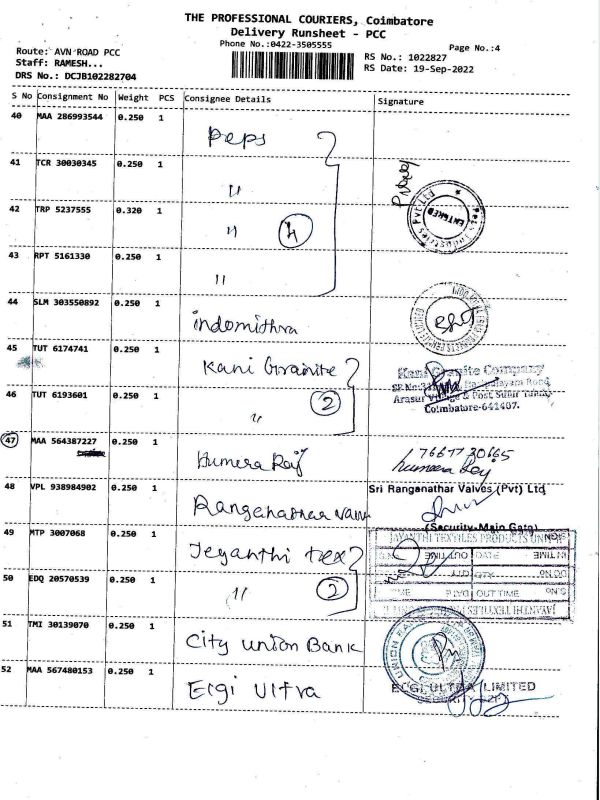 THE PROFESSIONAL COURIERS, Coimbatore
Delivery Runsheet - PCC
Phone No.:0422-3505555
Page No.:4
Route: AVN ROAD PCC
Staff: RAMESH...
DRS No.: DCJB102282704
RS No.: 1022827
RS Date: 19-Sep-2022
S No Consignment No Weight PCS Consignee Details Signature
40 MAA 286993544 0.250 1 Peps
41 TCR 30030345 0.250 1 "
42 TRP 5237555 0.320 1 " 4
43 RPT 5161330 0.250 1 "
44 SLM 303550892 0.250 1 indomithra
45 TUT 6174741 0.250 1 Kani Granite
46 TUT 6193601 0.250 1 " 2
Kani Granite Company
Arasur Village & Post, Sulur Taluk,
Coimbatore-641407.
47 MAA 564387227 0.250 1 Humera Raj
7667730665
humeera Raj
48 VPL 938984902 0.250 1 Ranganathar valve
Sri Ranganathar Valves (Pvt) Ltd
(Security-Main Gate)
49 MTP 3007068 0.250 1 Jeyanthi tex
50 EDQ 20570539 0.250 1 " 2
JAYANTHI TEXTILES PRODUCTS UNIT
OUT TIME
51 TMI 30139070 0.250 1 City union Bank
52 MAA 567480153 0.250 1 Elgi Ultra
ELGI ULTRA LIMITED